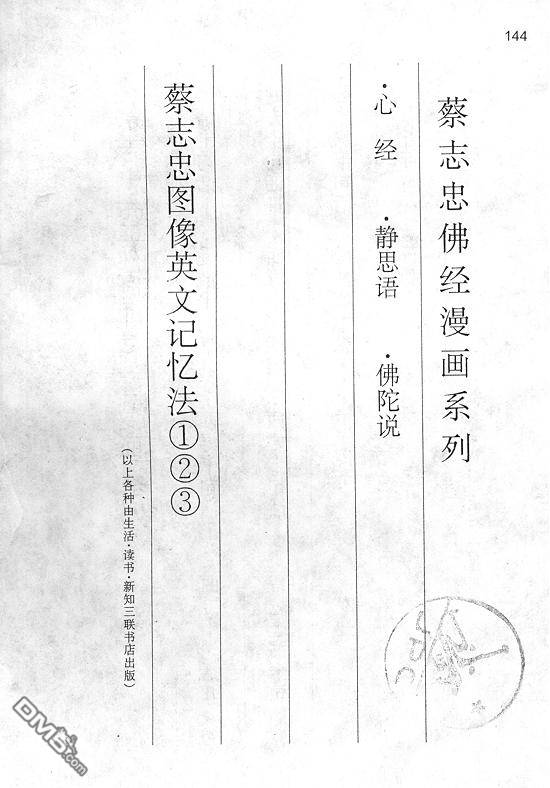 144
蔡志忠佛经漫画系列
·心经 ·静思语 ·佛陀说
蔡志忠图像英文记忆法①②③
(以上各种由生活·读书·新知三联书店出版)
DM5